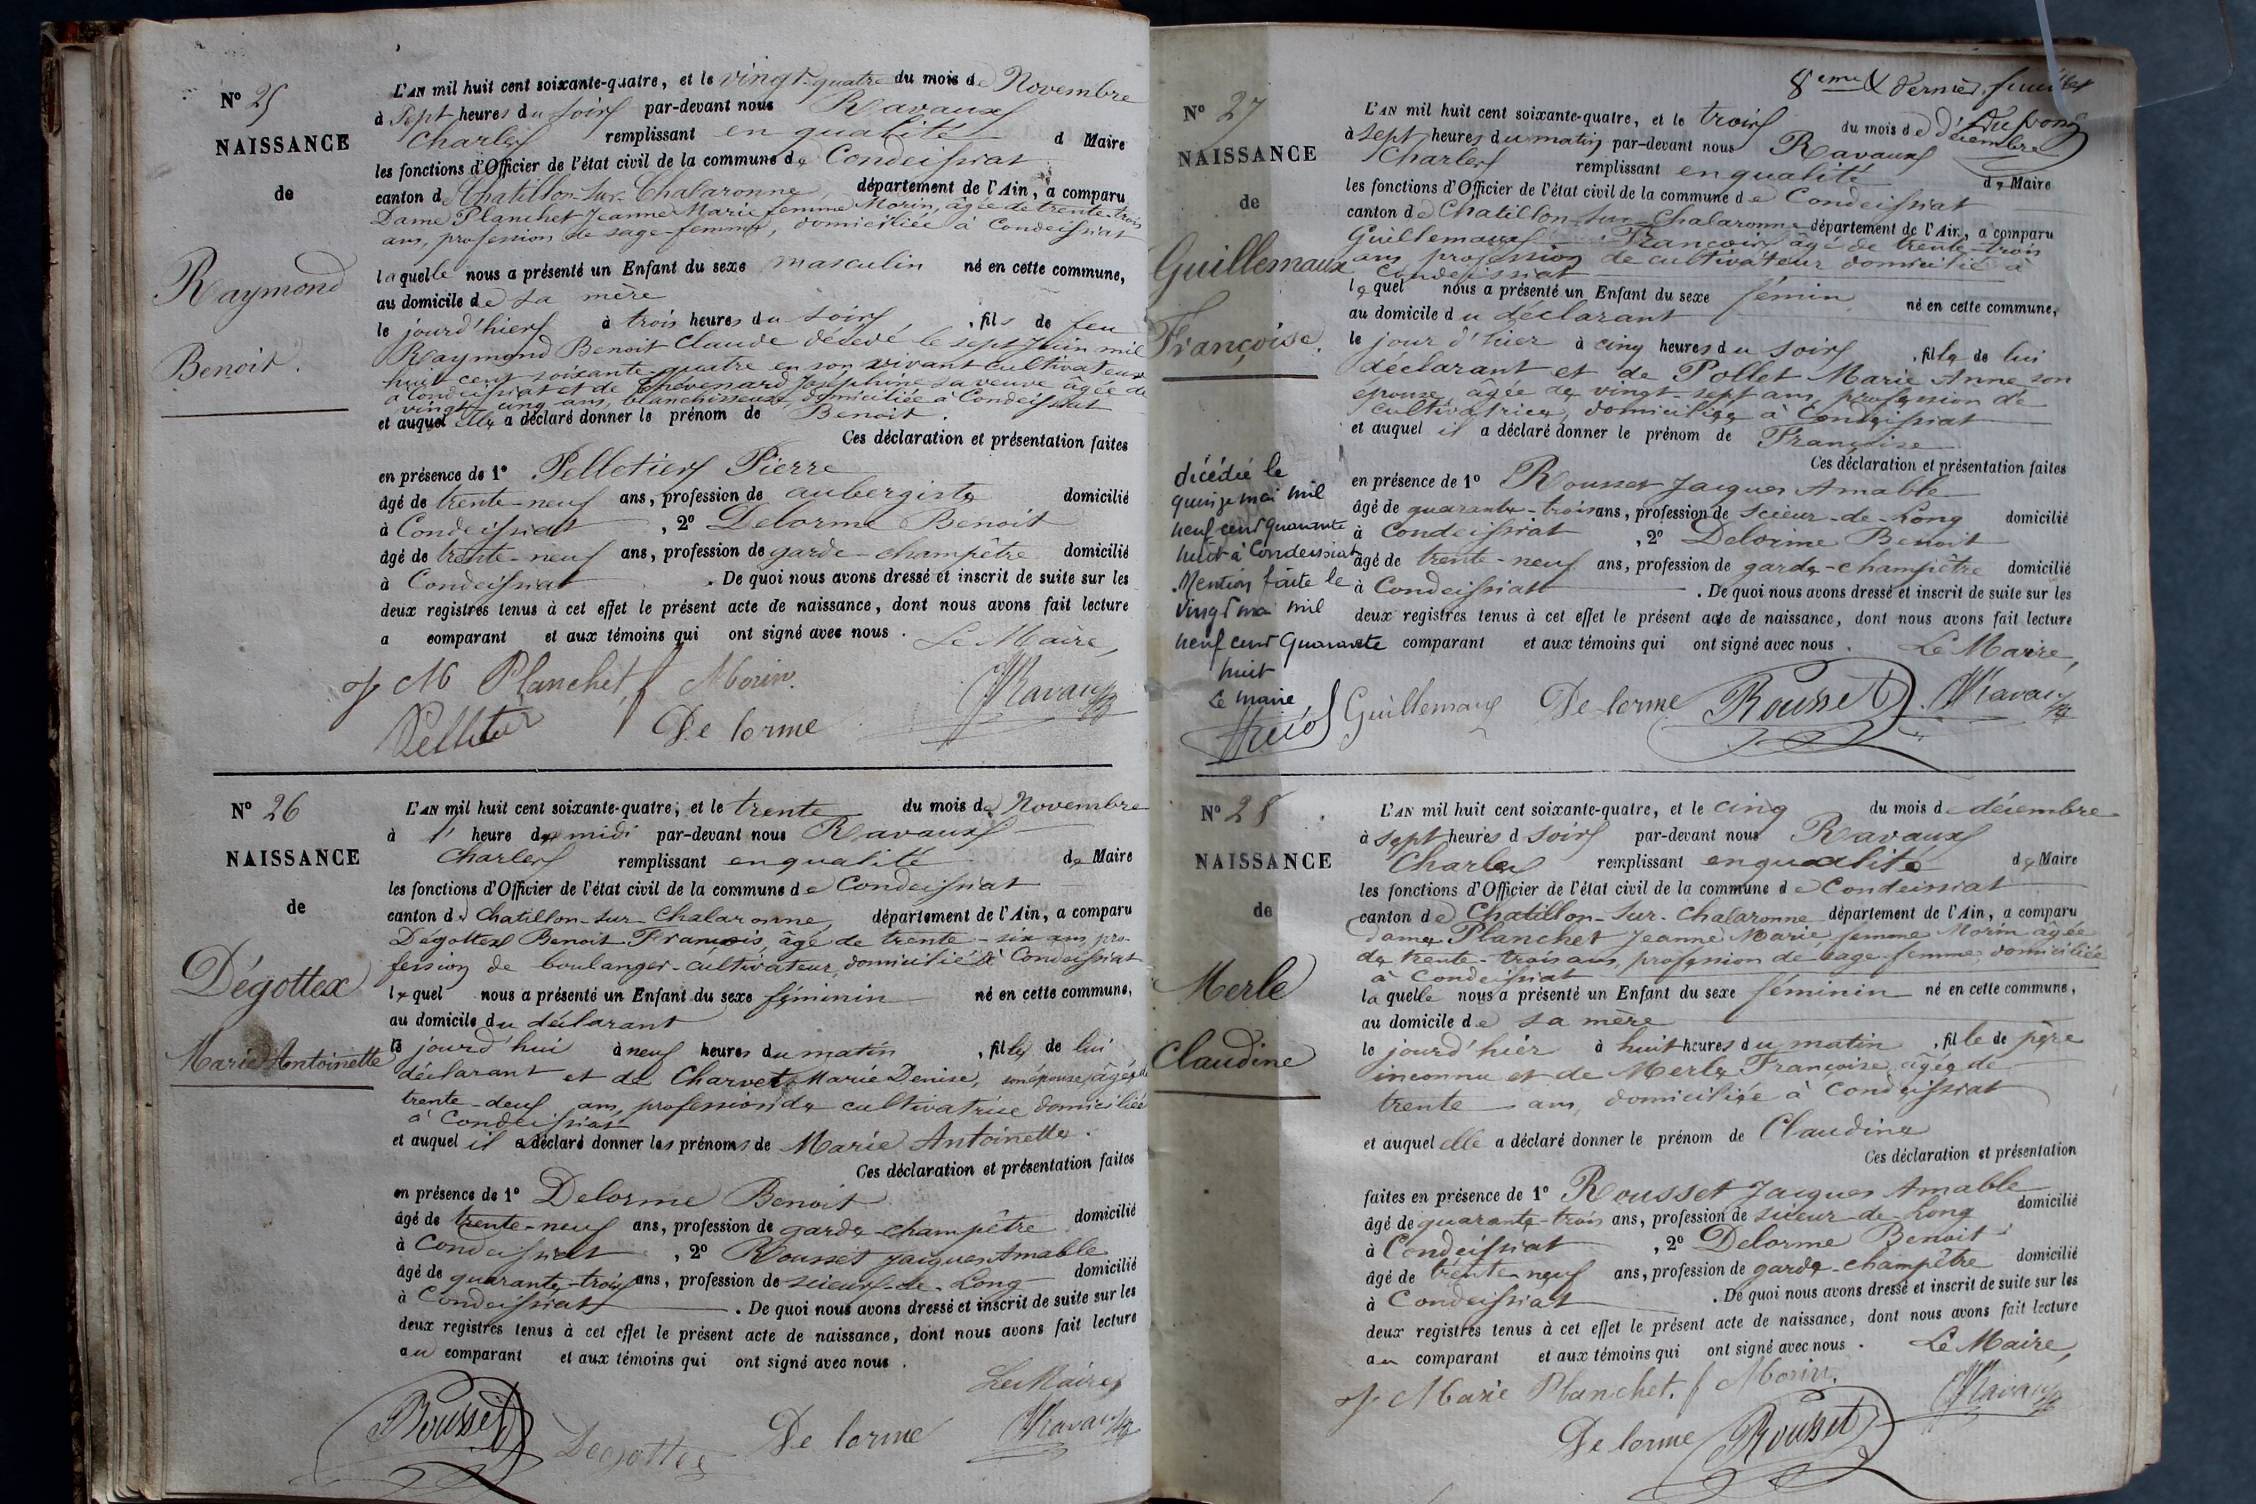 N° 25
NAISSANCE
de
Raymond
Benoit.
L'AN mil huit cent soixante-quatre, et le vingt-quatre du mois de Novembre
à Sept heures du soir par-devant nous Ravaux
Charles remplissant en qualité d Maire
les fonctions d'Officier de l'état civil de la commune de Condeissiat
canton de Chatillon-sur-Chalaronne, département de l'Ain, a comparu
Dame Planchet Jeanne Marie femme Morin, âgée de trente-trois
ans, profession de sage-femme, domiciliée à Condeissiat
laquelle nous a présenté un Enfant du sexe masculin né en cette commune,
au domicile de sa mère
le jourd'hier à trois heures du soir, fils de feu
Raymond Benoit Claude décédé le sept Juin mil
huit cent soixante-quatre en son vivant cultivateur
à Condeissiat et de Thévenard Joséphine sa veuve âgée de
vingt-cinq ans, blanchisseuse domiciliée à Condeissiat
et auquel elle a déclaré donner le prénom de Benoit.
Ces déclaration et présentation faites
en présence de 1° Pelletier Pierre
âgé de trente-neuf ans, profession de aubergiste domicilié
à Condeissiat, 2° Delorme Benoit
âgé de trente-neuf ans, profession de garde-champêtre domicilié
à Condeissiat. De quoi nous avons dressé et inscrit de suite sur les
deux registres tenus à cet effet le présent acte de naissance, dont nous avons fait lecture
a comparant et aux témoins qui ont signé avec nous. Le Maire,
J M Planchet, f Morin. CRavaux
Pelletier De lorme
N° 26
NAISSANCE
de
Dégottex
Marie Antoinette
L'AN mil huit cent soixante-quatre, et le trente du mois de Novembre
à l' heure de midi par-devant nous Ravaux
Charles remplissant en qualité de Maire
les fonctions d'Officier de l'état civil de la commune de Condeissiat
canton de Chatillon-sur-Chalaronne, département de l'Ain, a comparu
Dégottex Benoit François, âgé de trente-six ans, pro-
fession de boulanger-cultivateur, domicilié à Condeissiat
lequel nous a présenté un Enfant du sexe féminin né en cette commune,
au domicile du déclarant
le jourd'hui à neuf heures du matin, fille de lui
déclarant et de Charvet Marie Denise, son épouse, âgée de
trente-deux ans, profession de cultivatrice domiciliée
à Condeissiat
et auquel il a déclaré donner les prénoms de Marie Antoinette.
Ces déclaration et présentation faites
en présence de 1° Delorme Benoit
âgé de trente-neuf ans, profession de garde-champêtre domicilié
à Condeissiat, 2° Rousset Jacques Amable
âgé de quarante-trois ans, profession de scieur-de-Long domicilié
à Condeissiat. De quoi nous avons dressé et inscrit de suite sur les
deux registres tenus à cet effet le présent acte de naissance, dont nous avons fait lecture
au comparant et aux témoins qui ont signé avec nous.
Le Maire,
Rousset Degottex De lorme CRavaux
8eme & dernier feuillet
N° 27
NAISSANCE
de
Guillemaux
Françoise.
L'AN mil huit cent soixante-quatre, et le trois du mois de décembre
à sept heures du matin par-devant nous Ravaux
Charles remplissant en qualité de Maire
les fonctions d'Officier de l'état civil de la commune de Condeissiat
canton de Chatillon-sur-Chalaronne département de l'Ain, a comparu
Guillemaux François âgé de trente-trois
ans, profession de cultivateur domicilié à
Condeissiat
lequel nous a présenté un Enfant du sexe fémin né en cette commune,
au domicile du déclarant
le jour d'hier à cinq heures du soir, fille de lui
déclarant et de Pollet Marie Anne son
épouse, âgée de vingt-sept ans, profession de
cultivatrice, domiciliée à Condeissiat
et auquel il a déclaré donner le prénom de Françoise
Ces déclaration et présentation faites
en présence de 1° Rousset Jacques Amable
âgé de quarante-trois ans, profession de scieur-de-Long domicilié
à Condeissiat, 2° Delorme Benoit
âgé de trente-neuf ans, profession de garde-champêtre domicilié
à Condeissiat. De quoi nous avons dressé et inscrit de suite sur les
deux registres tenus à cet effet le présent acte de naissance, dont nous avons fait lecture
comparant et aux témoins qui ont signé avec nous. Le Maire,
Guillemaux De lorme Rousset CRavaux
décédée le
quinze mai mil
neuf cent quarante
huit à Condeissiat
Mention faite le
vingt mai mil
neuf cent quarante
huit
Le maire
N° 28
NAISSANCE
de
Merle
Claudine
L'AN mil huit cent soixante-quatre, et le cinq du mois de décembre
à sept heures d soir par-devant nous Ravaux
Charles remplissant en qualité de Maire
les fonctions d'Officier de l'état civil de la commune de Condeissiat
canton de Chatillon-sur-Chalaronne département de l'Ain, a comparu
dame Planchet Jeanne Marie, femme Morin âgée
de trente-trois ans, profession de sage-femme domiciliée
à Condeissiat
laquelle nous a présenté un Enfant du sexe féminin né en cette commune,
au domicile de sa mère
le jourd'hier à huit heures du matin, fille de père
inconnu et de Merle Françoise, âgée de
trente ans, domiciliée à Condeissiat
et auquel elle a déclaré donner le prénom de Claudine
Ces déclaration et présentation
faites en présence de 1° Rousset Jacques Amable
âgé de quarante-trois ans, profession de scieur-de-Long domicilié
à Condeissiat, 2° Delorme Benoit
âgé de trente-neuf ans, profession de garde-champêtre domicilié
à Condeissiat. De quoi nous avons dressé et inscrit de suite sur les
deux registres tenus à cet effet le présent acte de naissance, dont nous avons fait lecture
au comparant et aux témoins qui ont signé avec nous. Le Maire,
J Marie Planchet. f Morin. CRavaux
De lorme Rousset